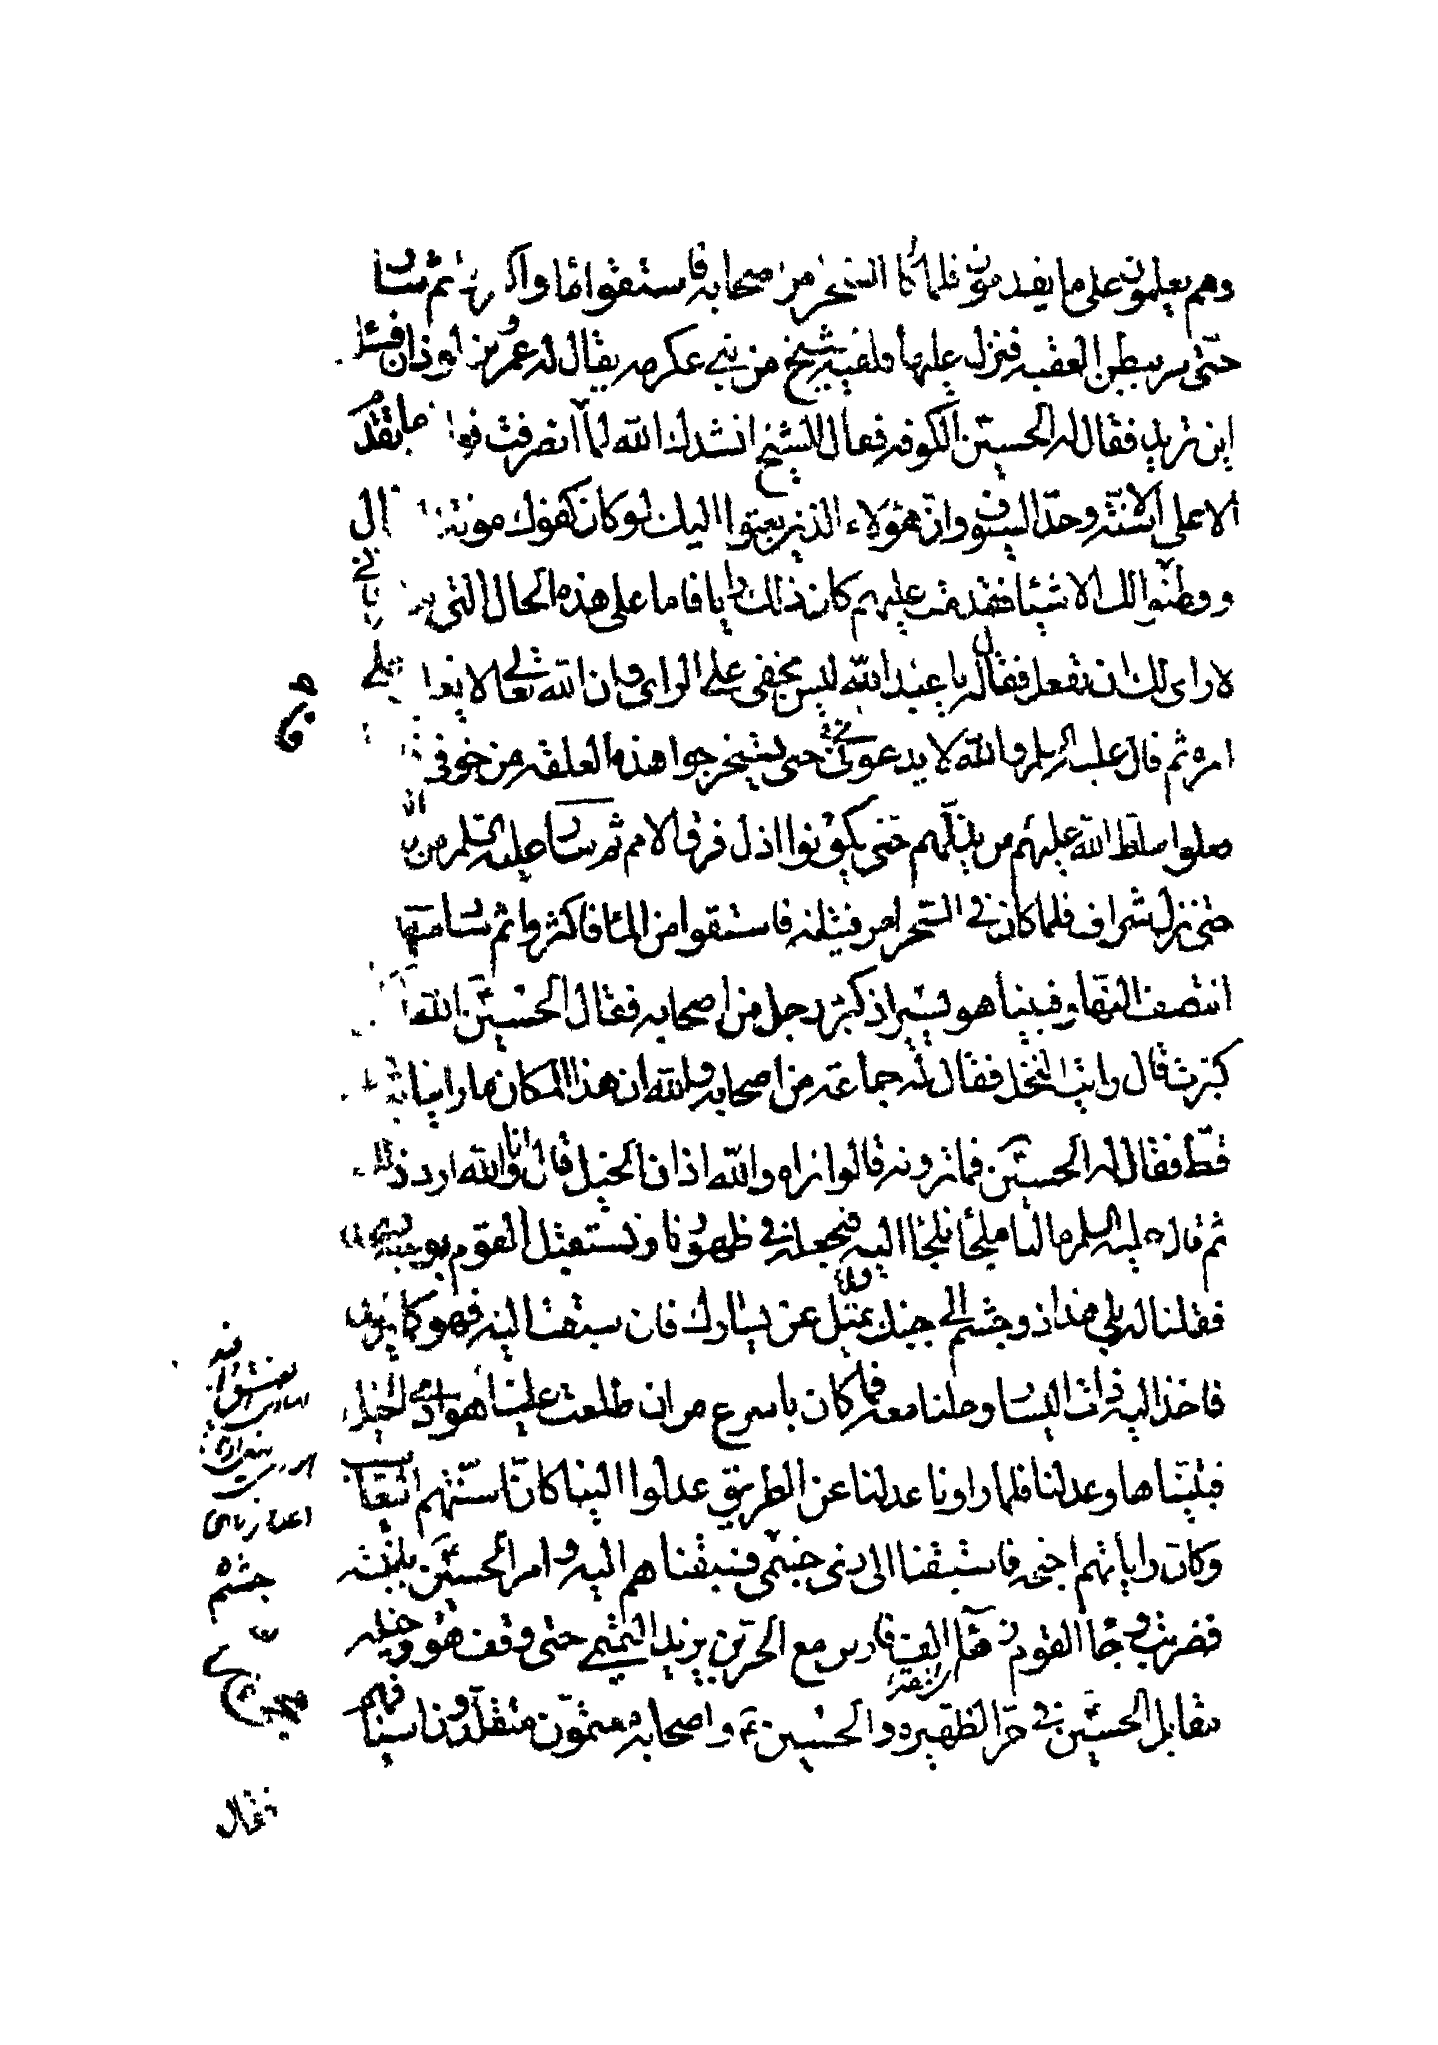 وهم يعلمون على ما يقدمون فلما كان السحر من اصحابه فاستقوا ماء واكثروا ثم سار
حتى مر ببطن العقبه فنزل عليها فلقيه شيخ من بني عكرمه يقال له عمرو بن لوذان فسئله
اين تريد فقال له الحسين الكوفه فقال الشيخ انشدك الله لما انصرفت فوا ما تقدم
الا على الاسنة وحد السيوف وان هؤلاء الذين بعثوا اليك لو كان كفوك مونة
ووطئوا لك الاشياء فقدمت عليهم كان ذلك رايا فاما على هذه الحال التي
لا راى لك ان تفعل فقال له يا عبد الله ليس يخفى على الراى وان الله تعالى لا يغلب على
امره ثم قال عليه السلم والله لا يدعونى حتى يستخرجوا هذه العلقه من جوفى
فعلوا سلط الله عليهم من يذلهم حتى يكونوا اذل فرق الامم ثم سار عليه السلم من
حتى نزل شراف فلما كان فى السحر امر فتيانه فاستقوا من الماء فاكثروا ثم سار منها
انتصف النهار فبينا هو يسير اذ كبر رجل من اصحابه فقال الحسين الله
كبرت قال رايت النخل فقال له جماعة من اصحابه والله ان هذا المكان ما راينا به
قط فقال له الحسين فما ترونه قالوا نراه والله اذان الخيل قال وانا والله ارى ذلك
ثم قال عليه السلم مالنا ملجأ نلجأ اليه فنجعله فى ظهورنا ونستقبل القوم بوجه
فقلنا له بلى هذا ذو جشم الى جنبك تميل عن يسارك فان سبقت اليه فهو كما تريد
فاخذ اليه ذات اليسار وملنا معه فما كان باسرع من ان طلعت علينا هوادى الخيل
فتبيناها وعدلنا فلما راونا عدلنا عن الطريق عدلوا الينا كان اسنتهم
وكان راياتهم اجنحه فاستبقنا الى ذى جشم فسبقناهم اليه وامر الحسين بابنيته
فضربت وجاء القوم زهاء الف فارس مع الحر بن يزيد التميمى حتى وقف هو وخيله
مقابل الحسين فى حر الظهيره والحسين واصحابه معتمون متقلدون اسيافهم
جشم
فقال